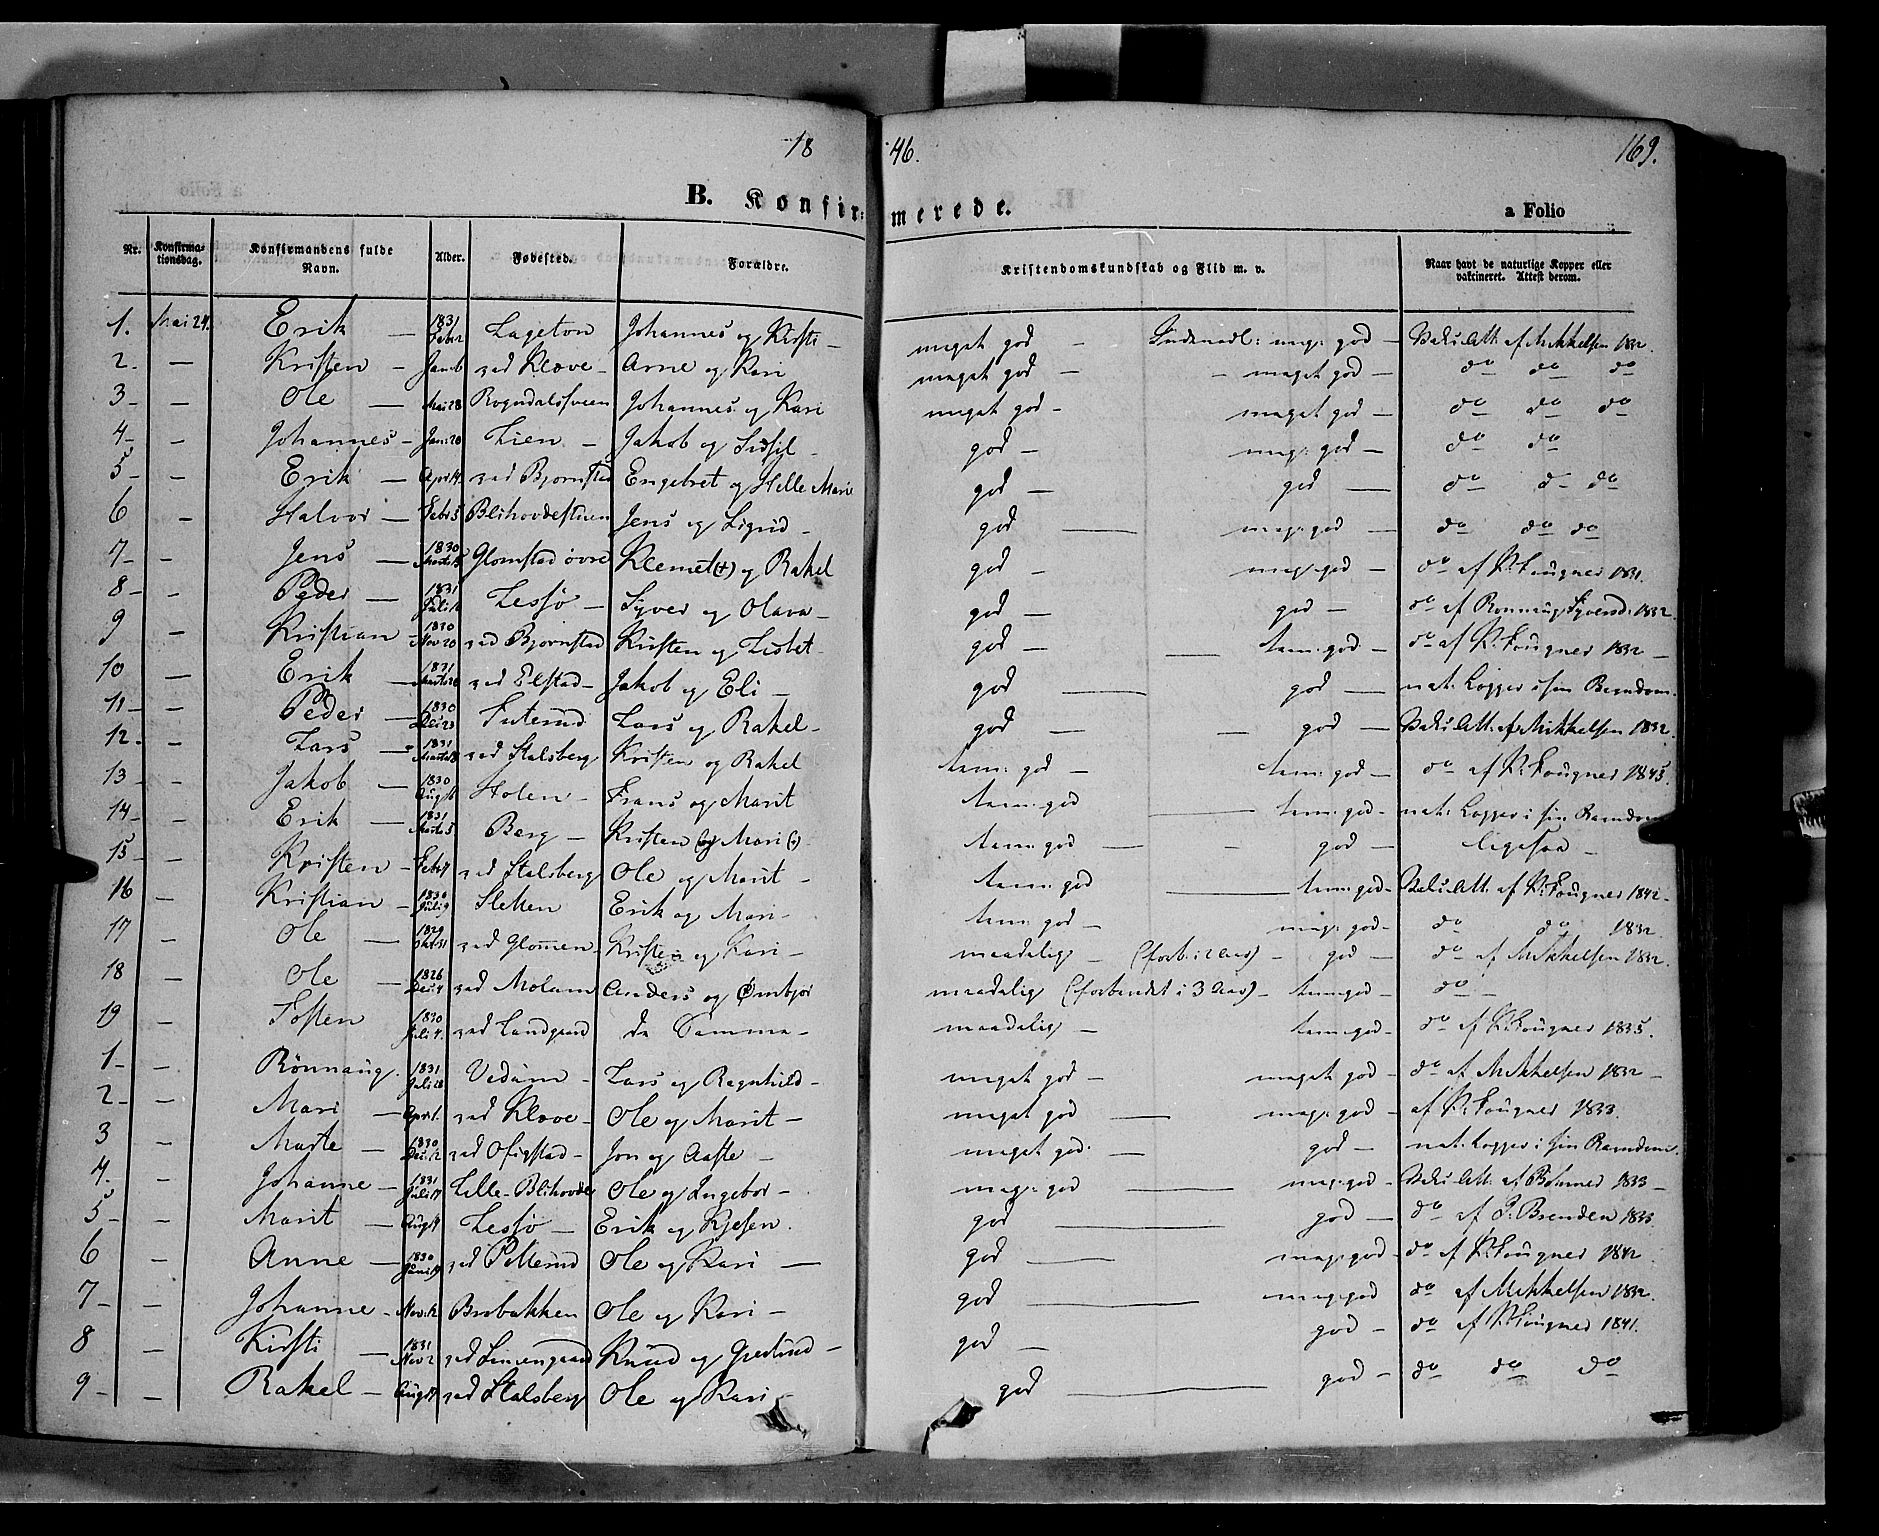 18 46. 169.
B. Konfirmerede. a Folio
Nr. Konfirmationsdag. Konfirmandens fulde Navn. Alder. Fødested. Forældre. Kristendomskundskab og Flid m. v. Naar havt de naturlige Kopper eller vaktineret. Attest derom.
1. Mai 24. Erik — 1831 Febr 2 Lageton Johannes og Kirsti — meget god — meg: god — Vaks: Att. af Mikkelsen 1832.
2. — Kristen — Jan 6 ved Kløve — Arne og Kari meget god — — meget god — do do do
3 — — Ole — Mai 28 Rogndalsveen Johannes og Kari meget god — meget god — do do do
4 — — Johannes — Jan: 20 Lien — Jakob og Sidsil — god — meg: god — do do
5 — — Erik — April 4 ved Bjørnstad Engebret og Helle Marie god — god — do d— do
6 — Halvor — Febr 5 Blihovdestuen Jens og Sigrid — god — meg: god — do do do
7 — — Jens — 1830 Glomstad øvre Klemet (+) og Rakel god — meg: god — do af P. Fougner 1831.
8 — — Peder — 1831 Juli Lessjø — Syver og Olava — god — god — do af Rønnaug Syversd: 1832
9 — Kristian — 1830 Nov 20 ved Bjørnstad Kristen og Lisbet — god — — tem: god — do af P. Fougner 1832 —
10 — Erik — 1831 ved Elstad — Jakob og Eli — god — god — nat: Kopper i sin Barndom.
11 — — Peder — 1830 Dec: 23 Futerud Lars og Rakel — god — — god — Vaks: Att. af Mikkelsen 1832.
12 — — Lars — 1831 ved Stalsberg Kristen og Rakel tem: god — tem: god — do af P. Fougner 1845.
13 — — Jakob — 1830 Aug 16 Holen — Frans og Marit tem: god — tem: god — nat: Kopper i sin Barndom
14 — — Erik — 1831 Marts 5 Berg — Kristen og Mari tem: god — — god — ligesaa —
15 — — Kristen — Febr 4 ved Stalsberg Ole og Marit — tem: god — tem: god — Vaks: Att: af P. Fougner 1842 —
16 — Kristian — 1830 Juli 9 Sletten Erik og Mari — tem: god — meg: god — do do 1832
17 — Ole — 1829 Okt 31 ved Glomen — Kristen og Kari — maadelig — (forb: i 2 Aar) — god — do af Mikkelsen 1832.
18 — Ole — 1826 Dec 4 ved Molum Anders og Ømbjør maadelig (forberedet i 3 Aar) — tem: god — do —
19 — Tosten 1830 Juli 4. ved Landgaard de Samme — maadelig — tem: god — do af P. Fougner 1835.
1 — — Rønnaug. 1831 Juli 28 Vedum — Lars og Ragnhild — meget god — meget god — do af Mikkelsen 1832 —
2 — — Mari — April 1. ved Kløve — Ole og Marit — meget god — meg: god — af P. Fougner 1833.
3 — Marte — 1830 Dec: 12 ved Ofigstad — Jon og Aaste — meget god. — god — nat: Kopper i sin Barndom.
4. — Johanne — 1831 Juli 17 Lille-Blihovde Ole og Ingebor — meg: god — meg: god — Vaks: Att. af Bøhmer 1833 —
5 — — Marit — Aug 14 Lessjø — Erik og Kjesen. god — god — do af P. Brenden 1833.
6 — Anne — 1830 Juni 19 ved Pellerud Ole og Kari — god — meg: god — do af P. Fougner 1842
7 — — Johanne — Nov: 12 Brobakken Ole og Kari — god — meg: god do af Mikkelsen 1832.
8 — Kirsti — 1831 Nov 2 ved Linsengaard Knud og Gjertrud — god — god — do af P. Fougner 1841.
9 — — Rakel — Aug 17 ved Stalsberg Ole og Kari — god — god — do do do